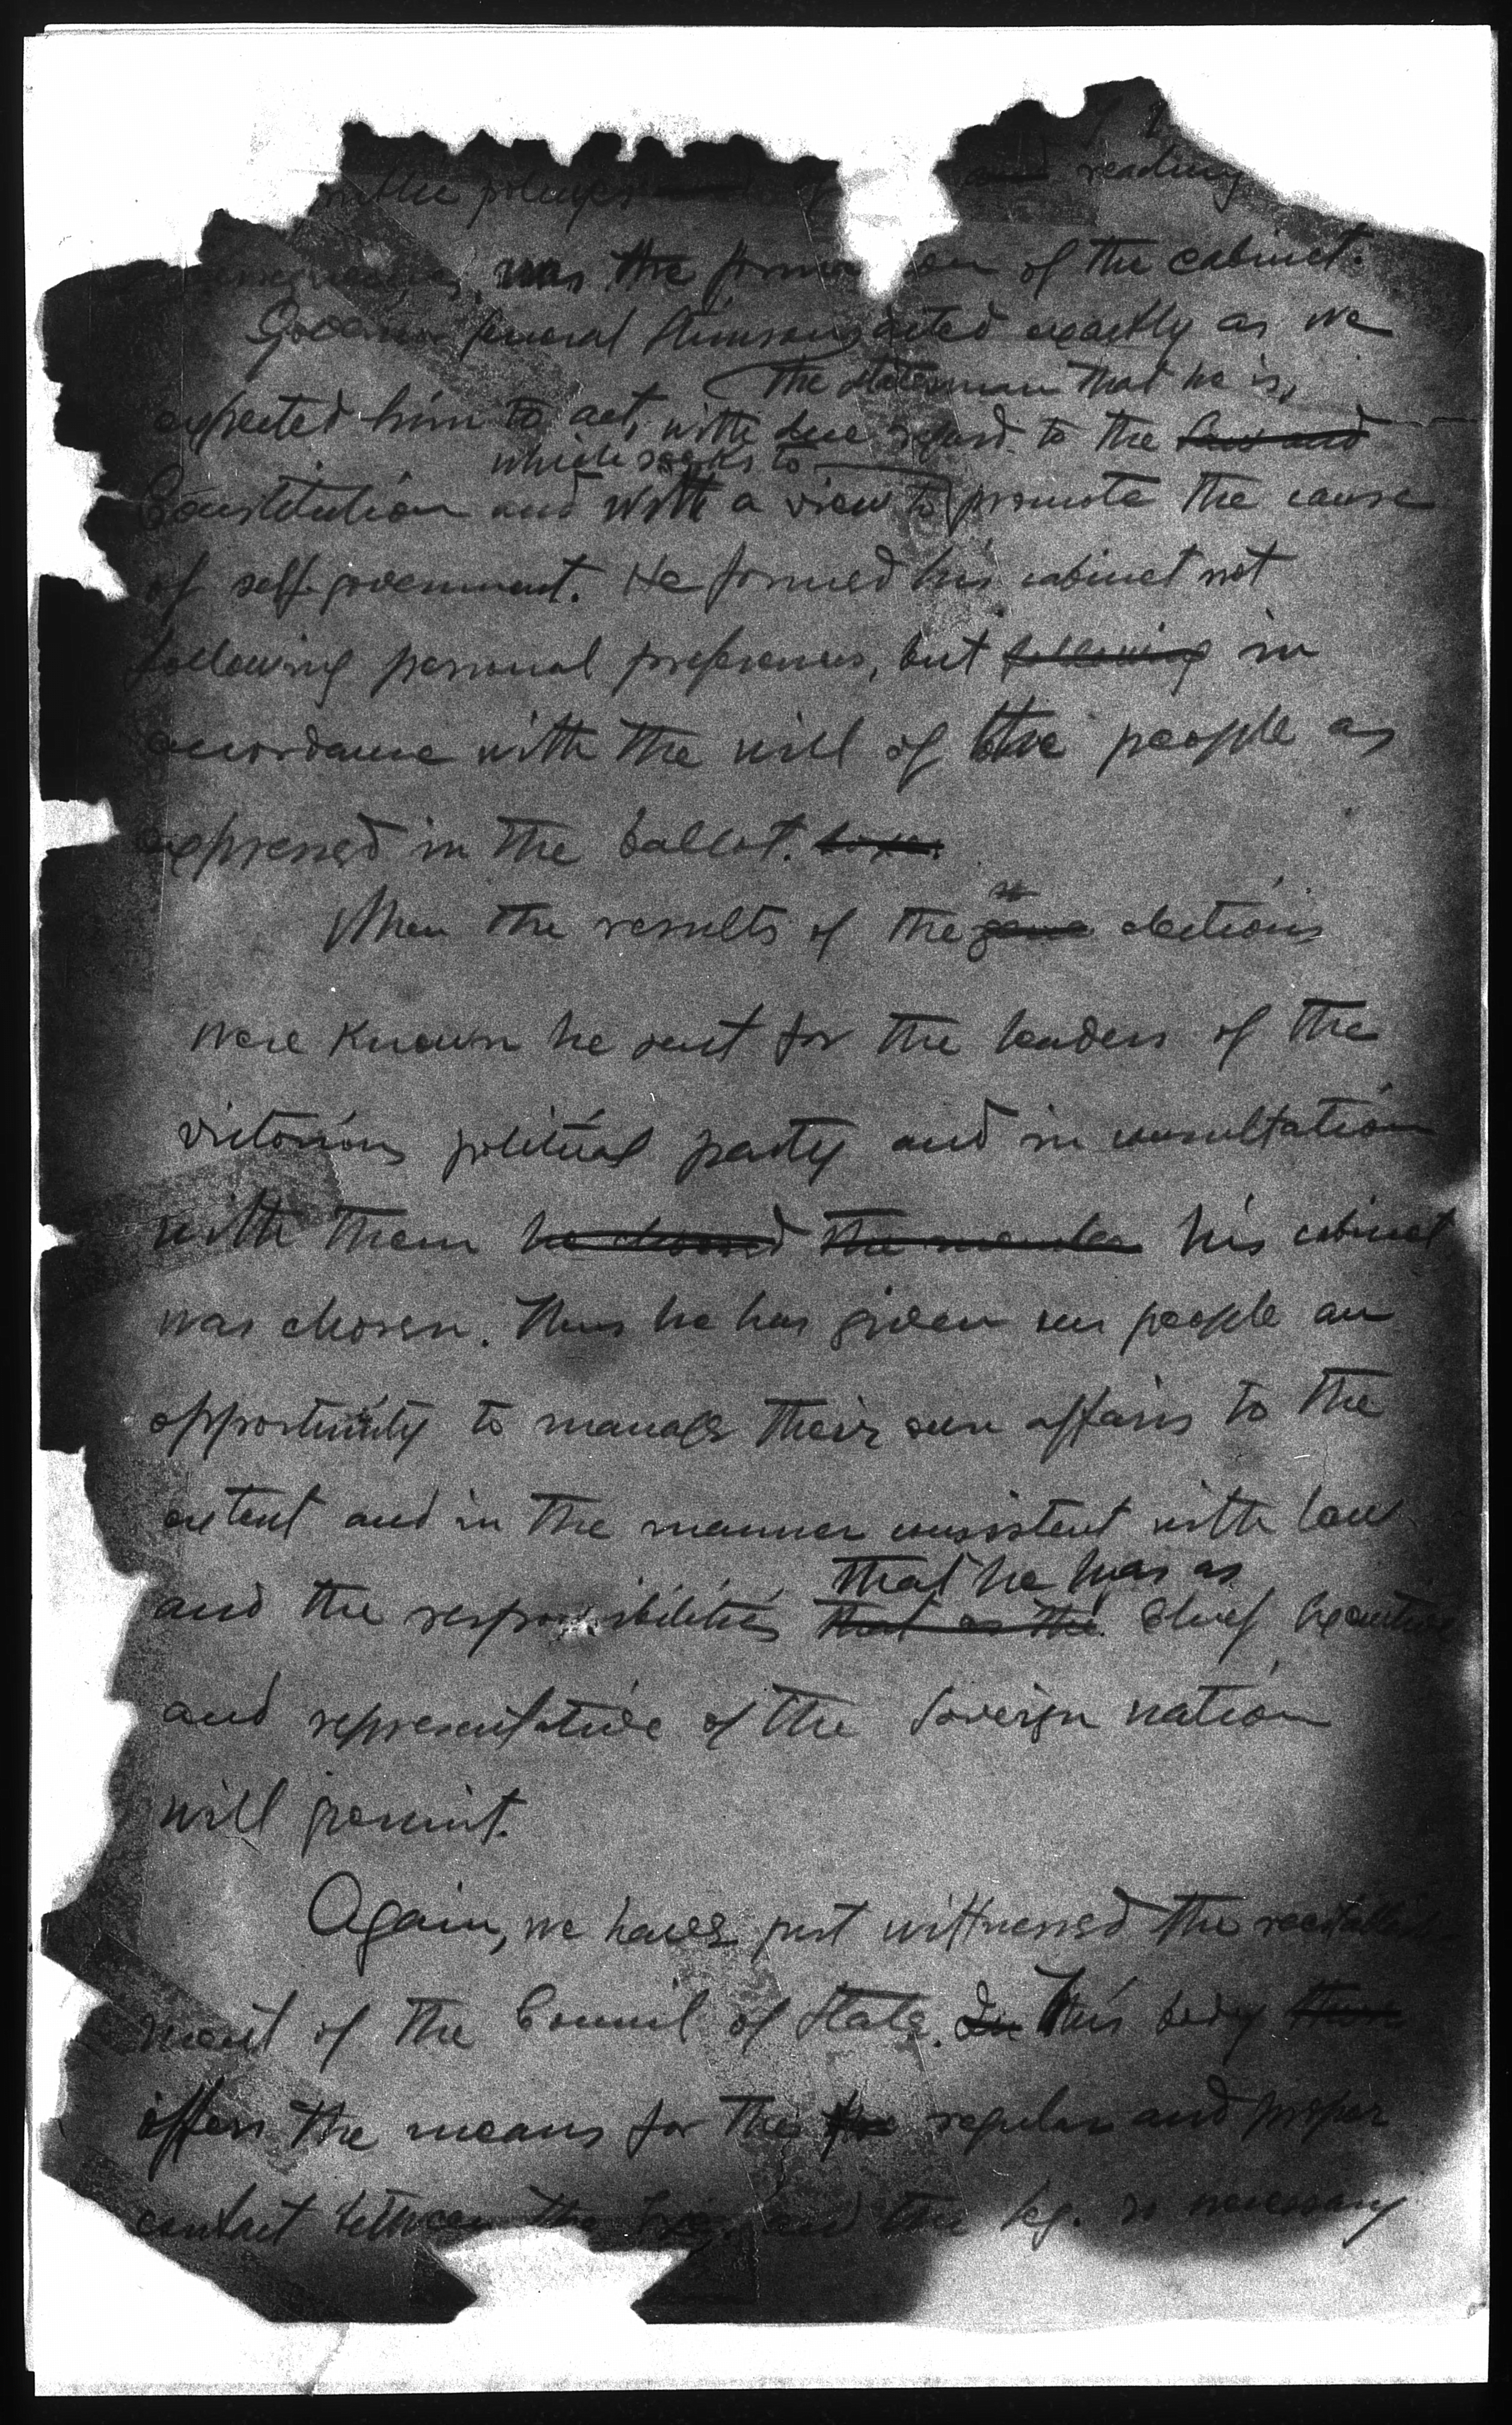 in the privileges and of and reading
was the forma on of the cabinet.
Governor General Stimson acted exactly as we
the statesman that he is,
expected him to act, with due regard to the law and
which seeks to
Constitution and with a view to promote the cause
of self-government. He formed his cabinet not
following personal preferences, but following in
accordance with the will of the people as
expressed in the ballot. boxes.
When the results of the gene elections
were known he sent for the leaders of the
victorious political party and in consultation
with them he choosed the member his cabinet
was chosen. Thus he has given our people an
opportunity to manage their own affairs to the
extent and in the manner consistent with law
that he has as
and the responsibilities that as the Chief Executive
and representative of the Soverign nation
will permit.
Again, we have just wittnessed the reestablish-
ment of the Council of State. In This body there
offers the means for the the regular and proper
contact between the Exec. and the Leg. so necessary